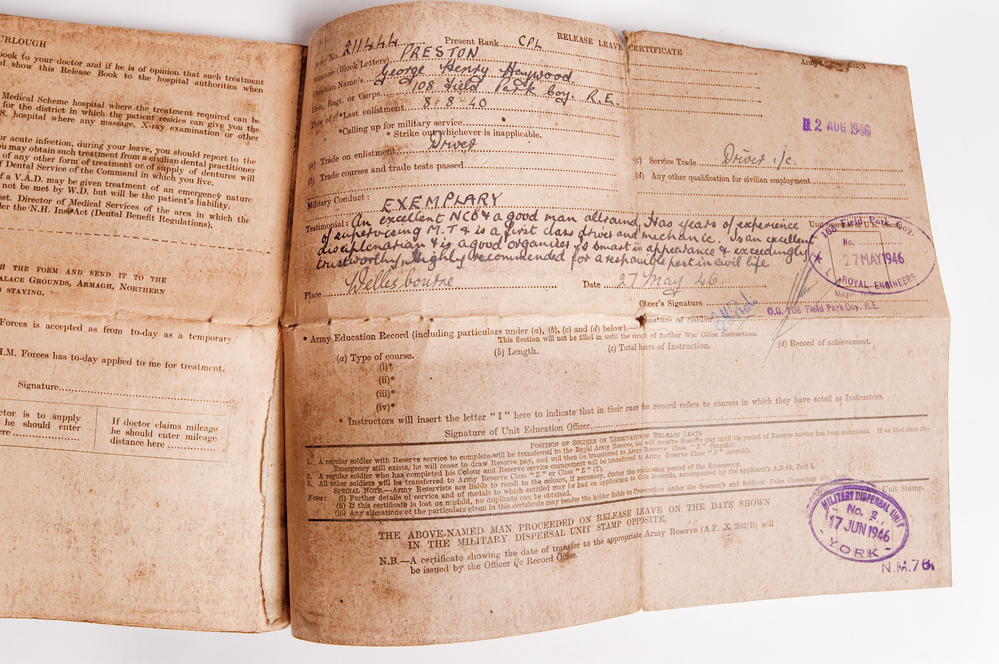 URLOUGH
book to your doctor and if he is of opinion that such treatment
d show this Release Book to the hospital authorities when
Medical Scheme hospital where the treatment required can be
for the district in which the patient resides can give you the
S. hospital where any massage, X-ray examination or other
or acute infection, during your leave, you should report to the
ou may obtain such treatment from a civilian dental practitioner
of any other form of treatment or of supply of dentures will
Dental Service of the Command in which you live.
a V.A.D. may be given treatment of an emergency nature
not be met by W.D. but will be the patient's liability.
st. Director of Medical Services of the area in which the
der the N.H. Insce Act (Dental Benefit Regulations).
H THE FORM AND SEND IT TO THE
ALACE GROUNDS, ARMAGH, NORTHERN
STAYING.
Forces is accepted as from to-day as a temporary
H.M. Forces has to-day applied to me for treatment.
Signature
ctor is to supply
he should enter
ere
If doctor claims mileage
he should enter mileage
distance here
RELEASE LEAVE CERTIFICATE
Army No. 211444 Present Rank CPL
Surname (Block Letters) PRESTON
Christian Name/s George Henry Haywood
Unit, Regt. or Corps 108 Field Park Coy. R.E.
Date of *Last enlistment 8.8.40
*Calling up for military service
* Strike out whichever is inapplicable.
12 AUG 1946
(a) Trade on enlistment Driver
(b) Trade courses and trade tests passed
(c) Service Trade Driver i/c.
(d) Any other qualification for civilian employment
Military Conduct : EXEMPLARY
Testimonial: An excellent NCO & a good man allround. Has years of experience
of supervising M.T & is a first class driver and mechanic. Is an excellent
disciplinarian & is a good organiser is smart in appearance & exceedingly
trustworthy. Highly recommended for a responsible post in civil life
108 Field Park Coy.
No.
27 MAY 1946
ROYAL ENGINEERS
Place Wellesbourne Date 27 May 46.
Officer's Signature
O.C. 108 Field Park Coy. R.E.
Signature of Soldier
* Army Education Record (including particulars under (a), (b), (c) and (d) below)
This Section will not be filled in until the result of further War Office Instructions.
(a) Type of course. (b) Length. (c) Total hours of Instruction. (d) Record of achievement.
(i)*
(ii)*
(iii)*
(iv)*
* Instructors will insert the letter "I" here to indicate that in their case the record refers to courses in which they have acted as Instructors.
Signature of Unit Education Officer
POSITION OF SOLDIER ON TERMINATION OF RELEASE LEAVE
1. A regular soldier with Reserve service to complete will be transferred to the Royal Army Reserve, and will receive Reserve pay until his period of Reserve service has been completed. If on that date the
Emergency still exists, he will cease to draw Reserve pay, and will then be transferred to Army Reserve Class "Z" (unpaid).
2. A regular soldier who has completed his Colour and Reserve service engagement will be transferred to Army Reserve Class "Z" (unpaid).
All other soldiers will be transferred to Army Reserve Class "Z" or Class "Z" (T), during the continuing period of the Emergency.
SPECIAL NOTE.—Army Reservists are liable to recall to the colours, if necessary,
Notes: (i) Further details of service and of medals to which entitled may be had on application to O i/c Records, accompanied by the applicant's A.B.64, Part I.
(ii) If this certificate is lost or mislaid, no duplicate can be obtained.
(iii) Any alterations of the particulars given in this certificate may render the holder liable to Prosecution under the Seamen's and Soldiers' False Characters Act
Unit Stamp.
THE ABOVE-NAMED MAN PROCEEDED ON RELEASE LEAVE ON THE DATE SHOWN
IN THE MILITARY DISPERSAL UNIT STAMP OPPOSITE.
N.B.—A certificate showing the date of transfer to the appropriate Army Reserve (A.F. X. 202/B) will
be issued by the Officer i/c Record Office.
MILITARY DISPERSAL UNIT
No. 2.
17 JUN 1946
- YORK -
N.M.76.